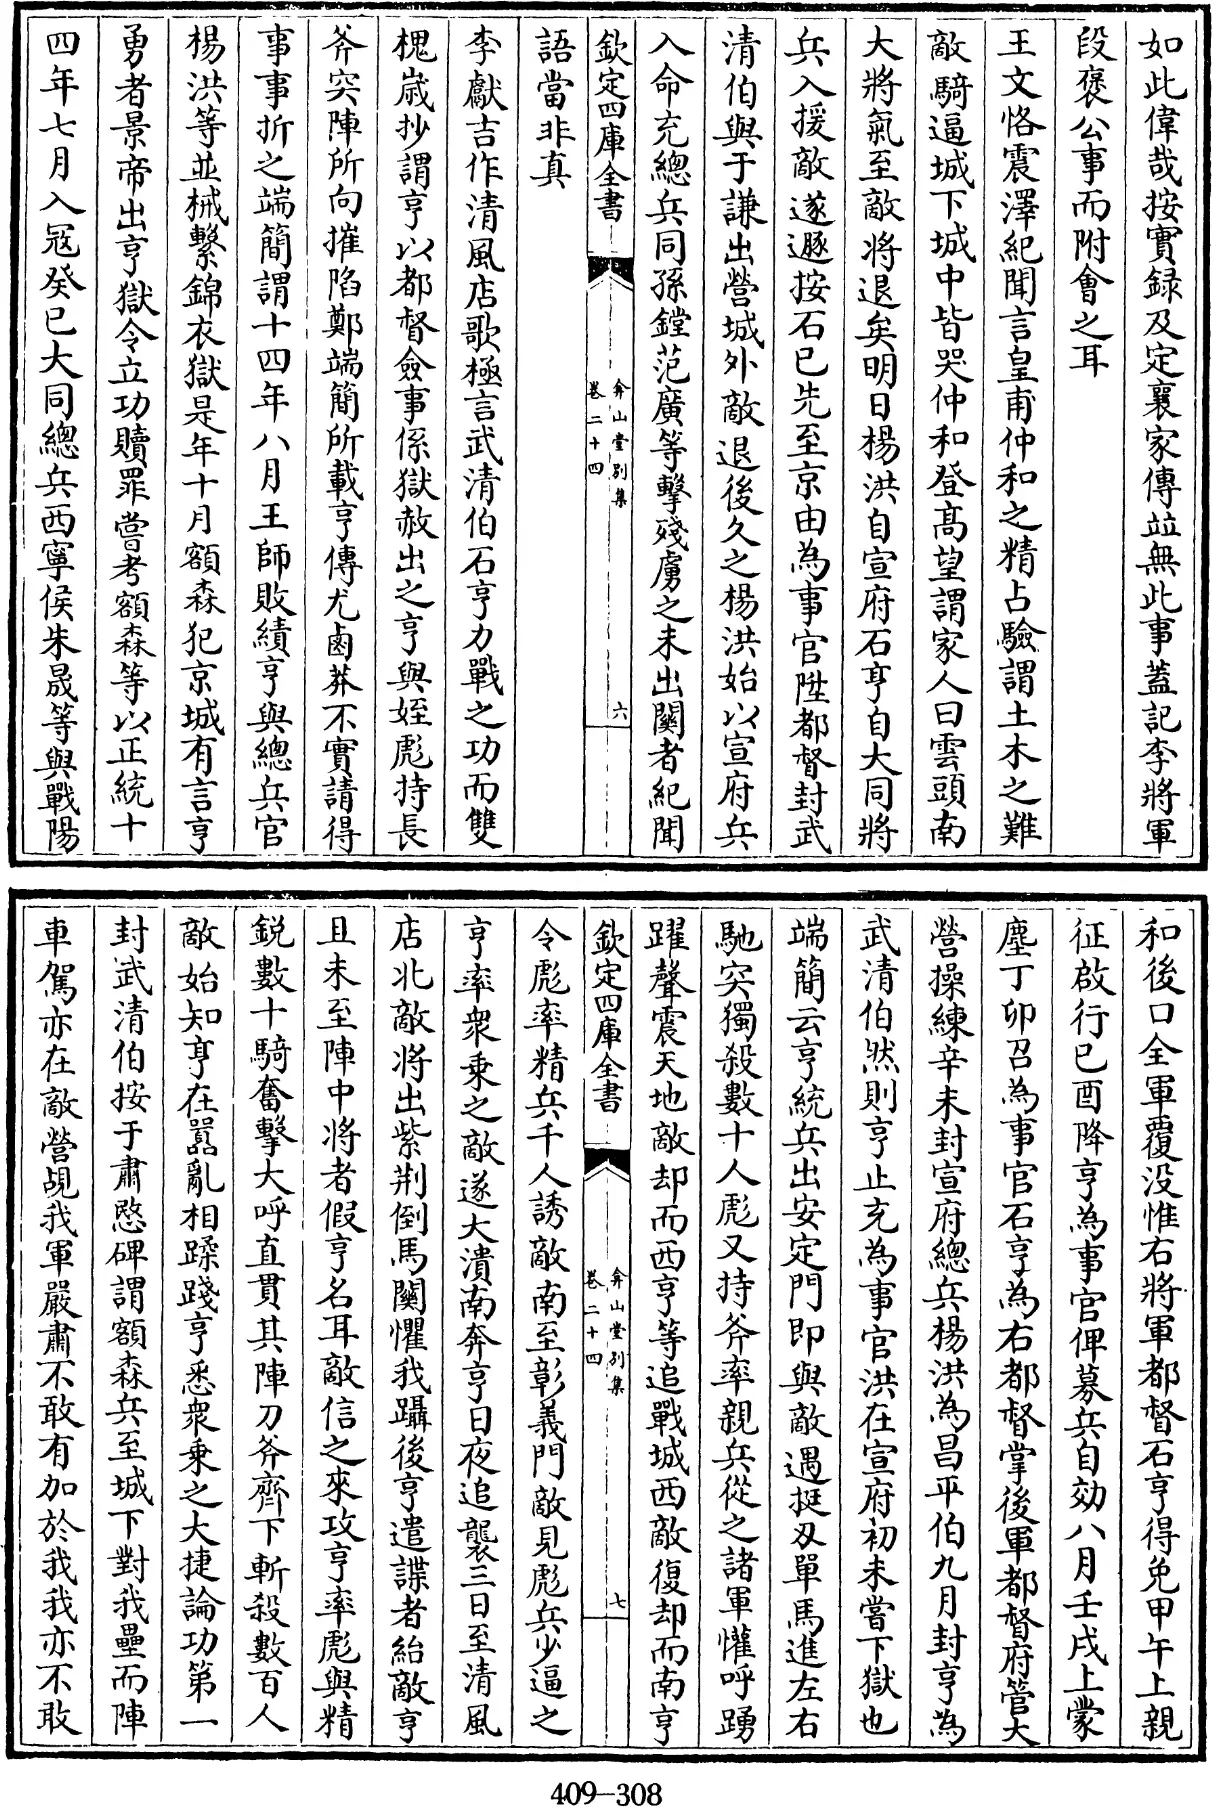 如此偉哉按實録及定襄家傳竝無此事蓋記李將軍
段褒公事而附會之耳
王文恪震澤紀聞言皇甫仲和之精占驗謂土木之難
敵騎逼城下城中皆哭仲和登髙望謂家人曰雲頭南
大將氣至敵將退矣明日楊洪自宣府石亨自大同將
兵入援敵遂遯按石已先至京由為事官陞都督封武
清伯與于謙出營城外敵退後久之楊洪始以宣府兵
入命充總兵同孫鏜范廣等擊殘虜之未出闗者紀聞
欽定四庫全書
弇山堂别集
卷二十四
六
語當非真
李獻吉作清風店歌極言武清伯石亨力戰之功而雙
槐歳抄謂亨以都督僉事係獄赦出之亨與姪彪持長
斧突陣所向摧陷鄭端簡所載亨傳尤鹵莽不實請得
事事折之端簡謂十四年八月王師敗績亨與總兵官
楊洪等並械繫錦衣獄是年十月額森犯京城有言亨
勇者景帝出亨獄令立功贖罪嘗考額森等以正統十
四年七月入冦癸巳大同總兵西寧侯朱晟等與戰陽
和後口全軍覆没惟右將軍都督石亨得免甲午上親
征啟行己酉降亨為事官俾募兵自効八月壬戌上蒙
塵丁卯召為事官石亨為右都督掌後軍都督府管大
營操練辛未封宣府總兵楊洪為昌平伯九月封亨為
武清伯然則亨止充為事官洪在宣府初未嘗下獄也
端簡云亨統兵出安定門即與敵遇挺刄單馬進左右
馳突獨殺數十人彪又持斧率親兵從之諸軍懽呼踴
躍聲震天地敵却而西亨等追戰城西敵復却而南亨
欽定四庫全書
弇山堂别集
卷二十四
七
令彪率精兵千人誘敵南至彰義門敵見彪兵少逼之
亨率衆乘之敵遂大潰南奔亨日夜追襲三日至清風
店北敵將出紫荆倒馬闗懼我躡後亨遣諜者紿敵亨
且未至陣中將者假亨名耳敵信之來攻亨率彪與精
鋭數十騎奮擊大呼直貫其陣刀斧齊下斬殺數百人
敵始知亨在嚣亂相蹂踐亨悉衆乘之大捷論功第一
封武清伯按于肅愍碑謂額森兵至城下對我壘而陣
車駕亦在敵營覘我軍嚴肅不敢有加於我我亦不敢
409-308